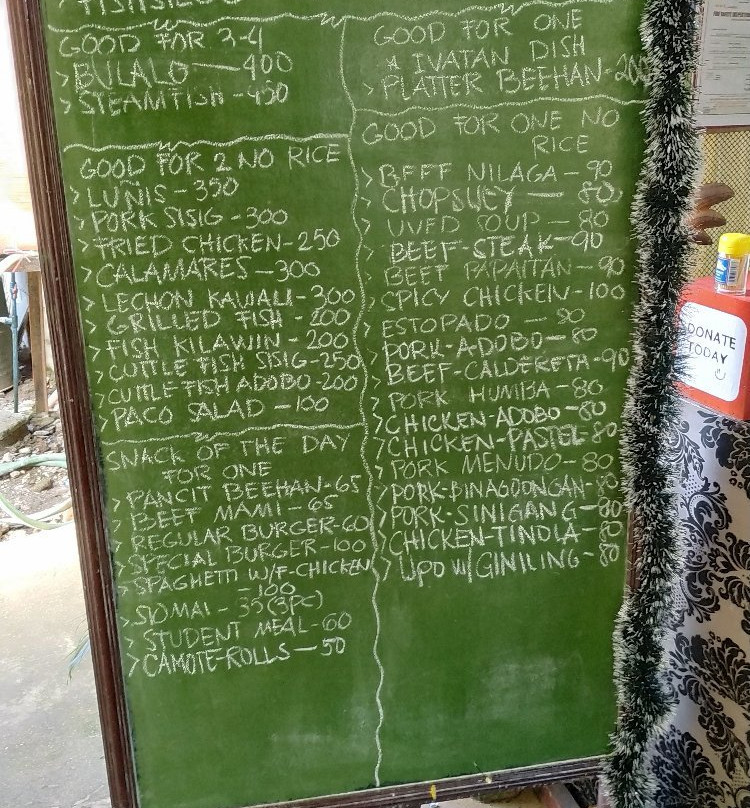 GOOD FOR 3-4
> BULALO — 400
> STEAMFISH - 450
GOOD FOR 2 NO RICE
> LUÑIS - 350
> PORK SISIG - 300
> FRIED CHICKEN - 250
> CALAMARES - 300
> LECHON KAWALI - 300
> GRILLED FISH - 200
> FISH KILAWIN - 200
> CUTTLE FISH SISIG - 250
> CUTTLE FISH ADOBO - 200
> PACO SALAD - 100
SNACK OF THE DAY
FOR ONE
> PANCIT BEEHAN - 65
> BEEF MAMI - 65
> REGULAR BURGER - 60
> SPECIAL BURGER - 100
> SPAGHETTI W/F-CHICKEN
- 100
> SIOMAI - 35 (3PC)
> STUDENT MEAL - 60
> CAMOTE-ROLLS - 50
GOOD FOR ONE
IVATAN DISH
> PLATTER BEEHAN - 200
GOOD FOR ONE NO
RICE
> BEEF NILAGA - 90
> CHOPSUEY - 80
> UVED SOUP - 80
> BEEF-STEAK - 90
> BEEF PAPAITAN - 90
> SPICY CHICKEN - 100
> ESTOPADO - 80
> PORK-ADOBO - 80
> BEEF-CALDERETA - 90
> PORK HUMBA - 80
> CHICKEN-ADOBO - 80
> CHICKEN-PASTEL - 80
> PORK MENUDO - 80
> PORK-BINAGOONGAN - 80
> PORK-SINIGANG - 80
> CHICKEN-TINOLA - 80
> UPO W/ GINILING - 80
DONATE
TODAY